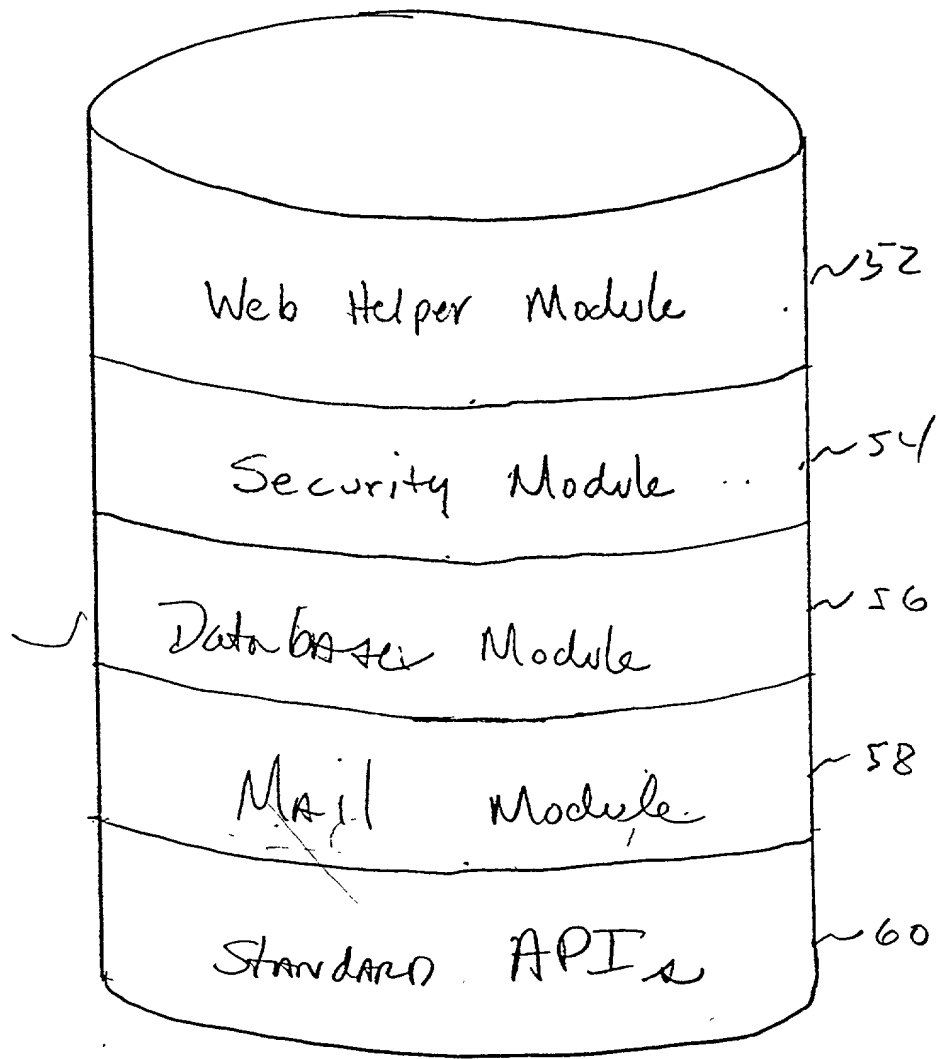 Web Helper Module
52
Security Module
54
Database Module
56
Mail Module
58
STANDARD APIs
60